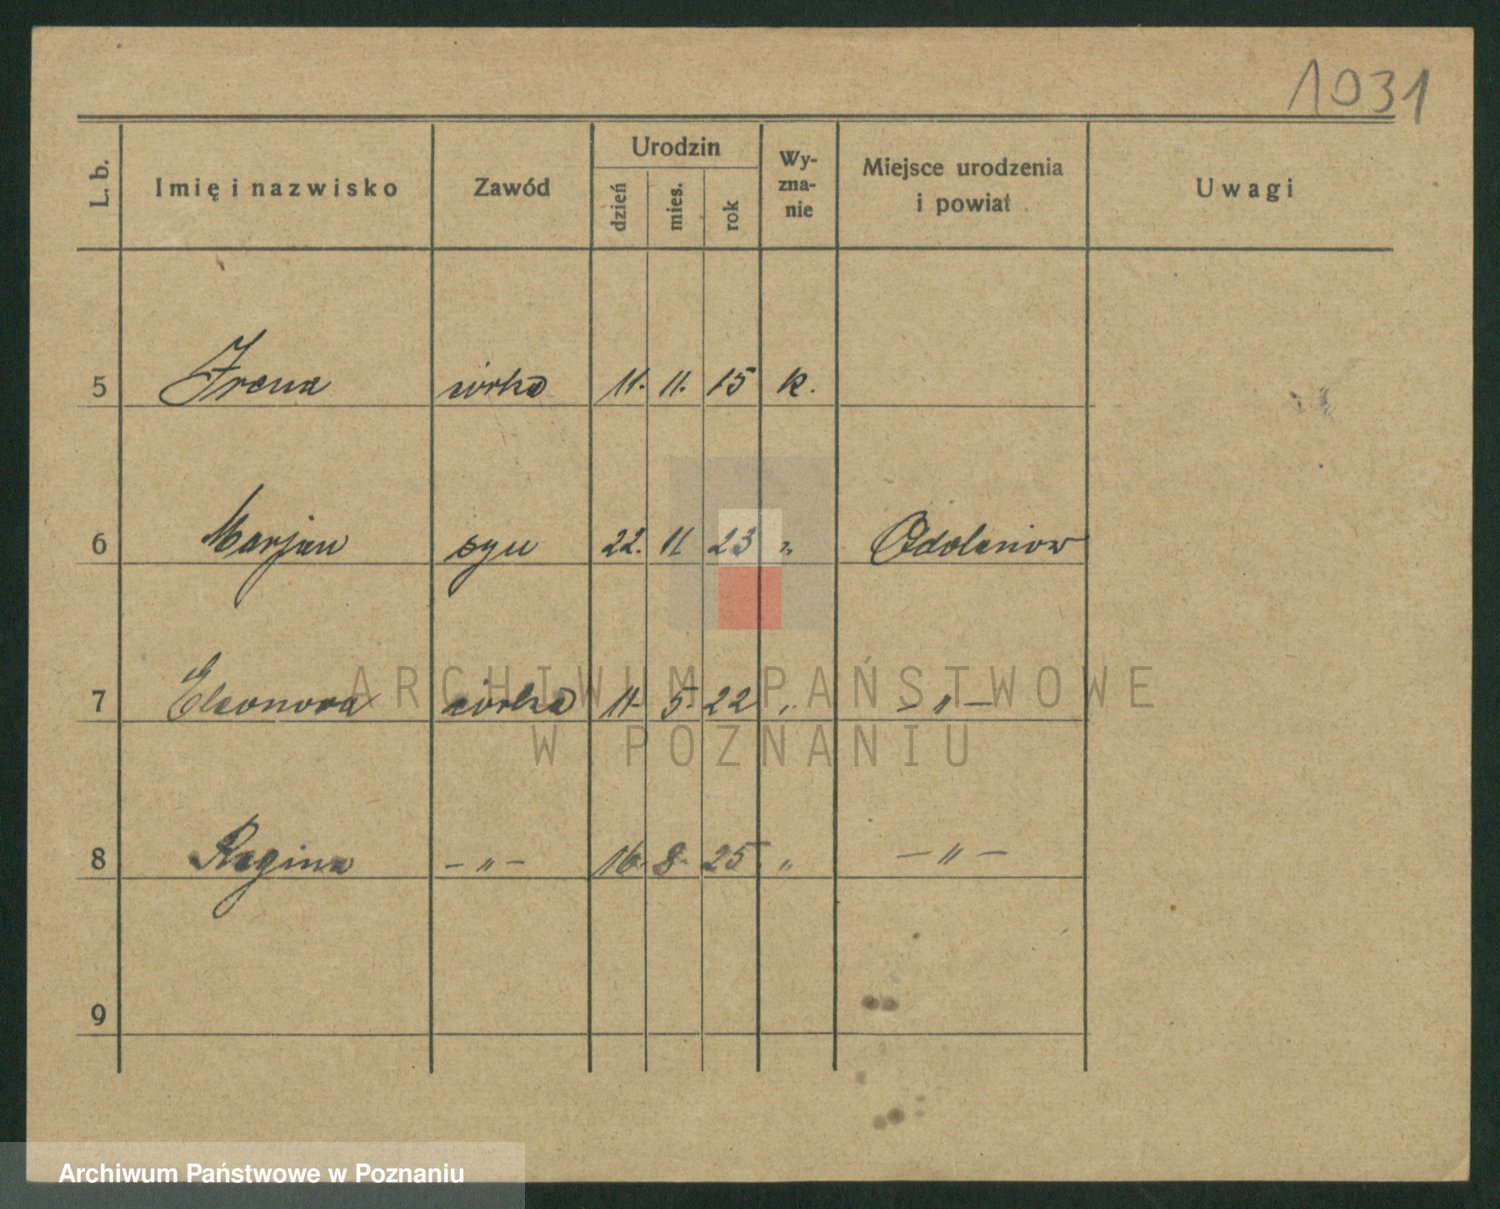 1031
L. b. Imię i nazwisko Zawód Urodzin dzień mies. rok Wy-zna-nie Miejsce urodzenia i powiat Uwagi
5 Irena córka 11. 11. 15 k.
6 Marjan syn 22. 11 23 „ Odolanow
7 Eleonora córka 11. 5. 22 „ — „ —
8 Regina — „ — 16. 8. 25. „ — „ —
9
ARCHIWUM PAŃSTWOWE
W POZNANIU
Archiwum Państwowe w Poznaniu